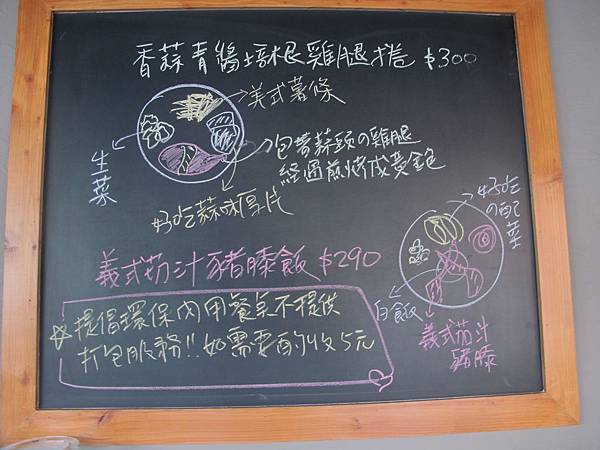 香蒜青醬培根雞腿捲 $300
美式薯條
生菜
包著蒜頭の雞腿
經過煎烤成黃金色
好吃蒜味厚片
好吃
の配菜
義式茄汁豬膝飯 $290
白飯
義式茄汁
豬膝
☆提倡環保內用餐点不提供
打包服務!!如需要酌收5元